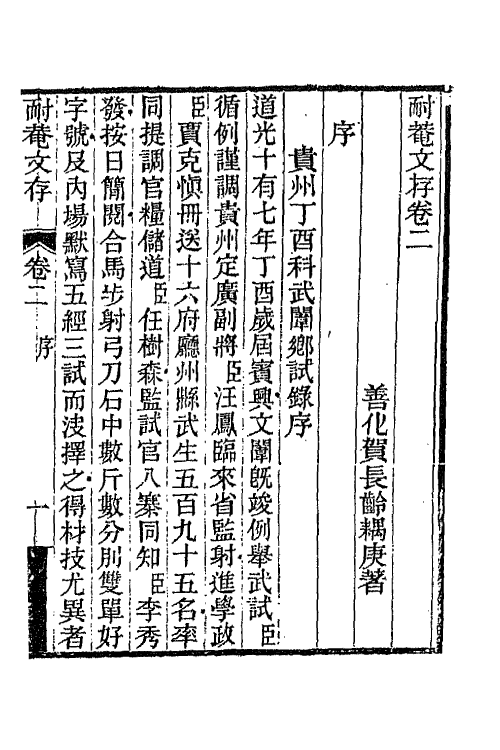 耐菴文存卷二
善化賀長齡耦庚著
序
貴州丁酉科武闈鄉試錄序
道光十有七年丁酉歲屆賓興文闈既竣例舉武試臣
循例謹調貴州定廣副將臣汪鳳臨來省監射進學政
臣賈克愼冊送十六府廳州縣武生五百九十五名率
同提調官糧儲道臣任樹森監試官八寨同知臣李秀
發按日簡閱合馬步射弓刀石中數斤數分別雙單好
字號及內場默寫五經三試而決擇之得材技尤異者
耐菴文存 卷二 序 一